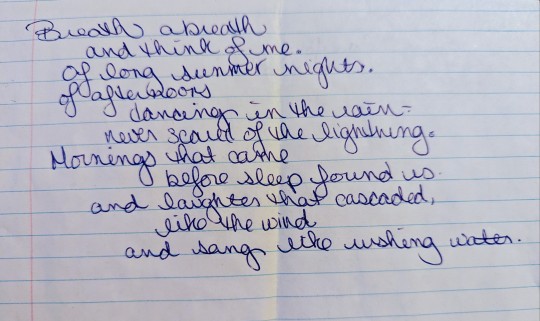 Breath a breath
and think of me.
Of long summer nights.
of afternoons
dancing in the rain -
never scared of the lightning.
Mornings that came
before sleep found us.
and laughter that cascaded,
like the wind
and sang like rushing water.